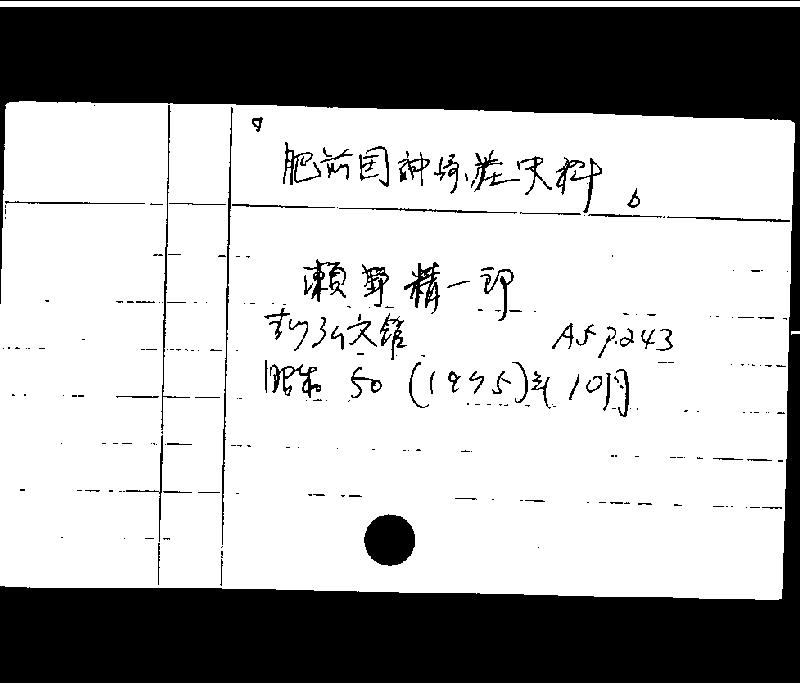 肥前国神埼荘史料
瀬野精一郎
吉川弘文館 A5 p.243
昭和 50 (1975)年 10月